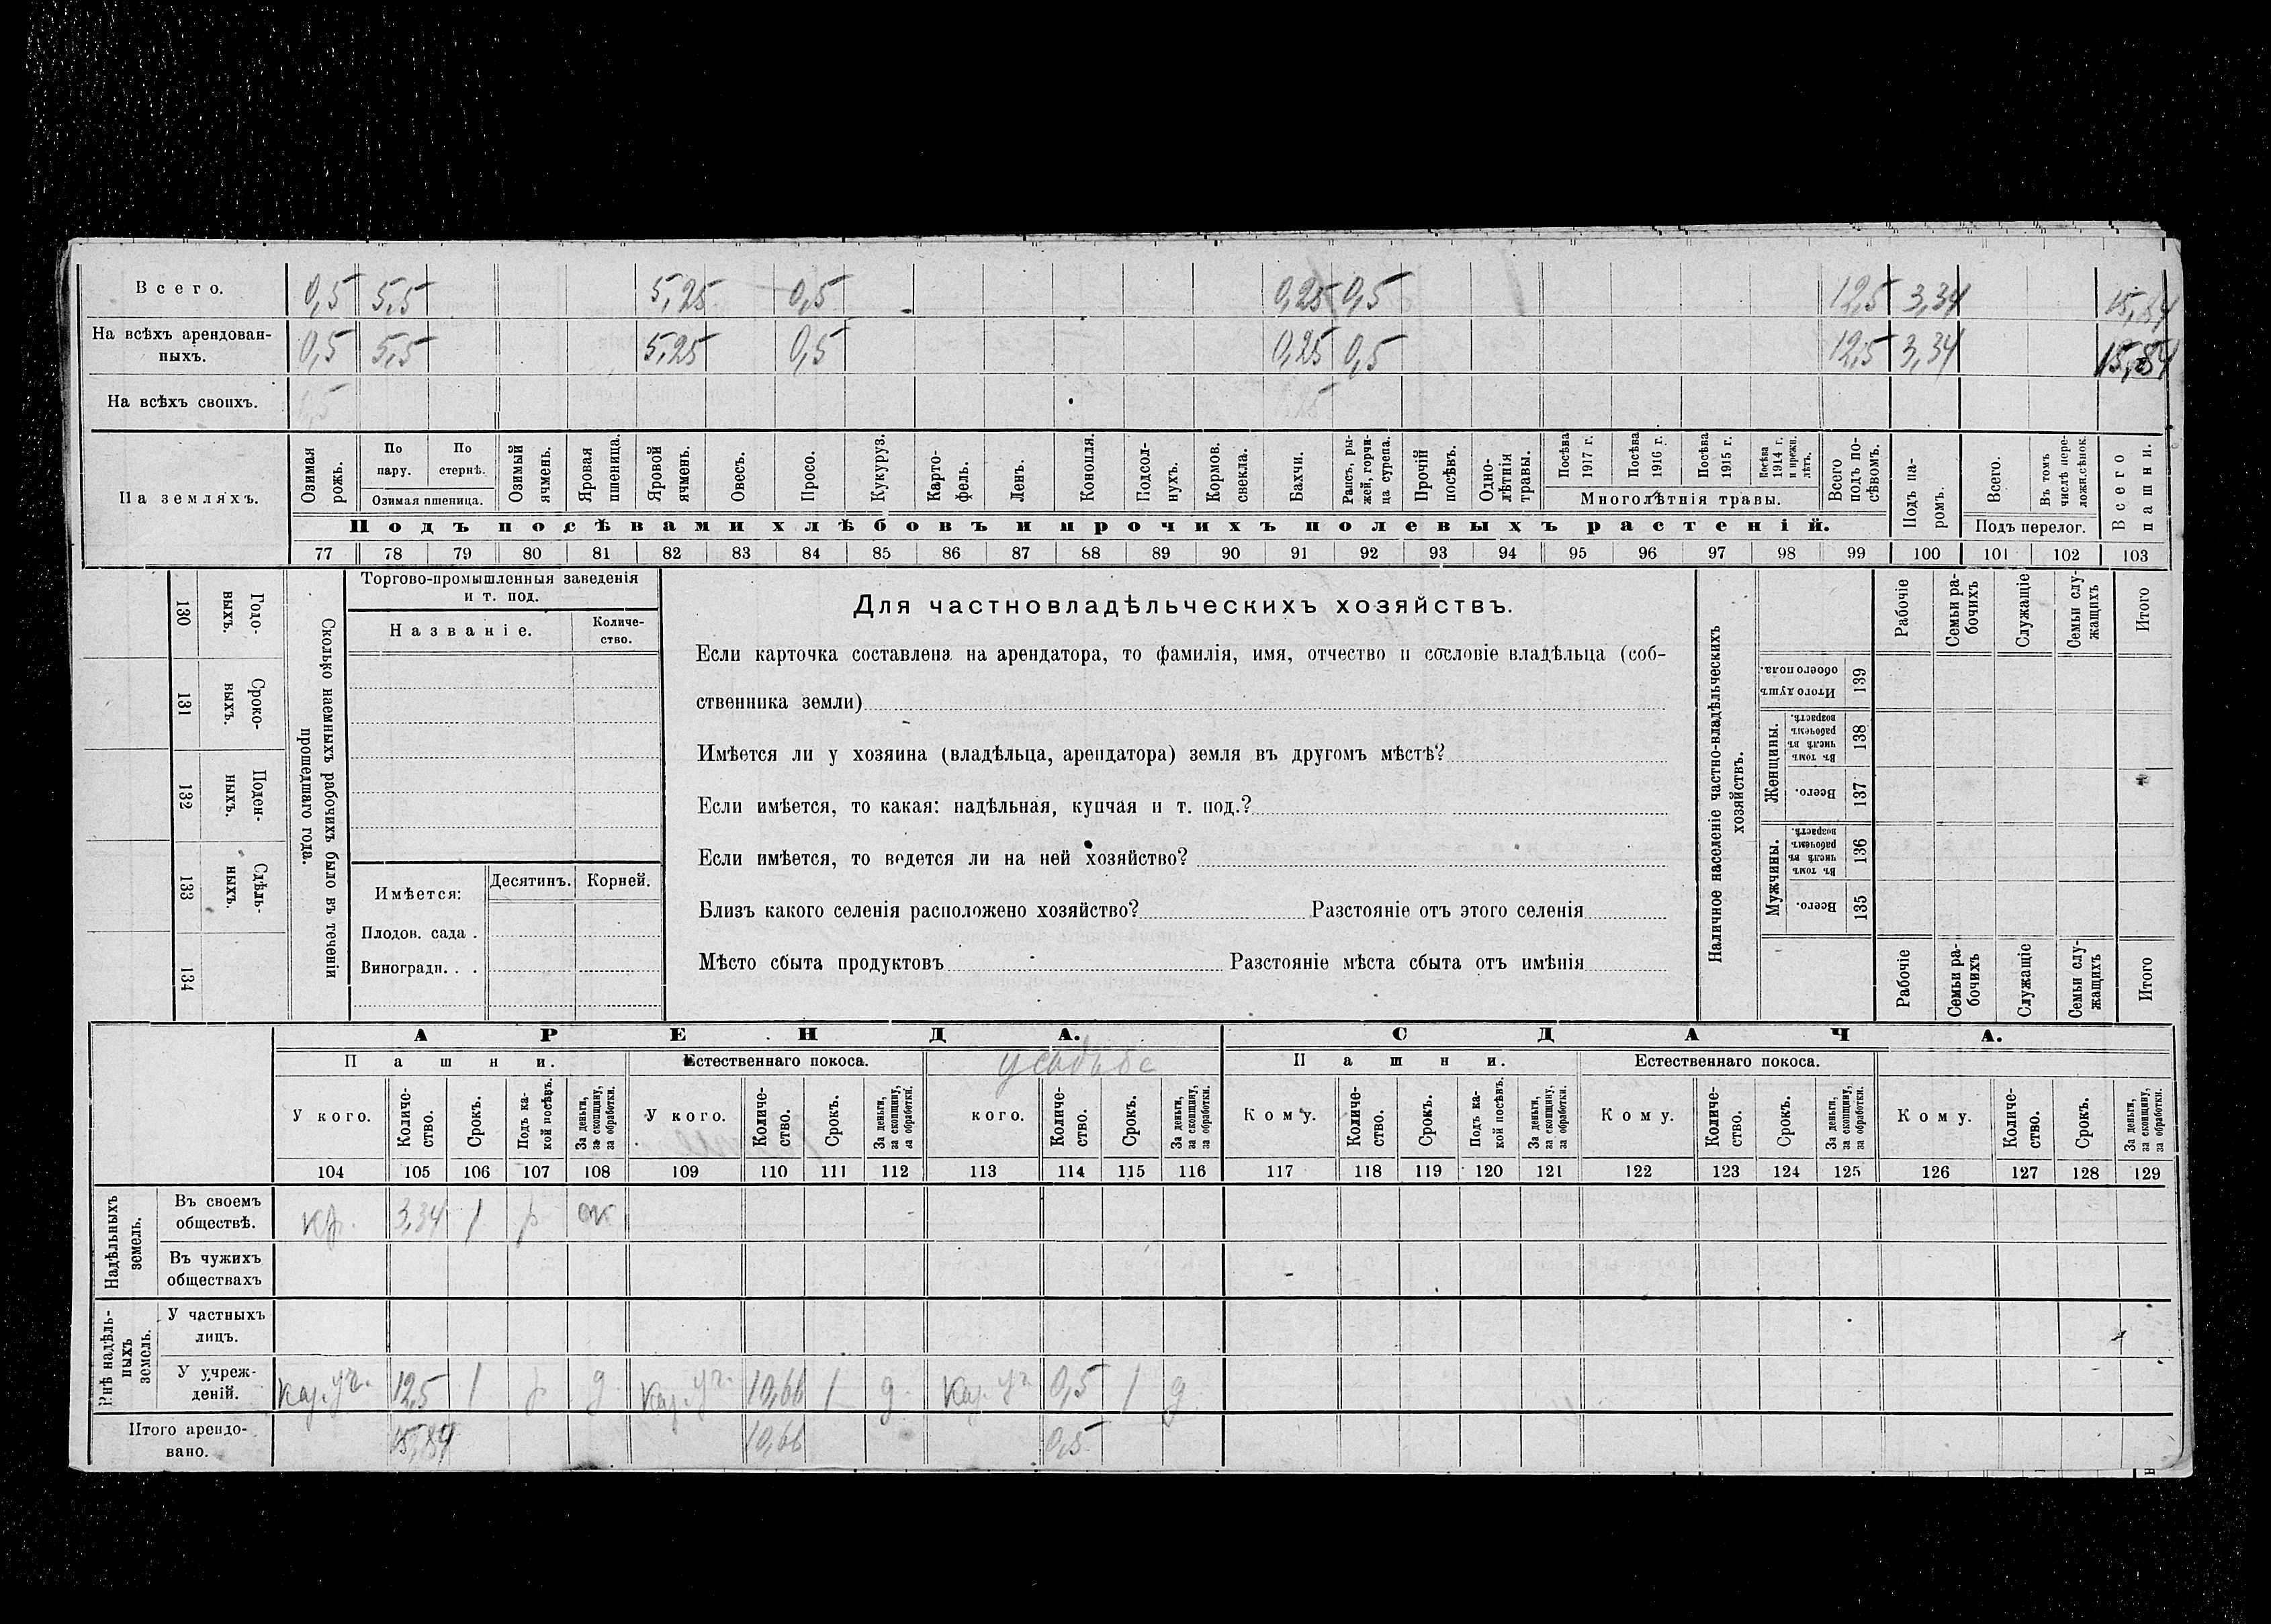 Всего. 0,5 5,5 5,25 0,5 0,25 0,5 12,5 3,34 15,84
На всѣхъ арендован- 0,5 5,5 5,25 0,5 0,25 0,5 12,5 3,34 15,84
ныхъ.
На всѣхъ своихъ.
На земляхъ.
Озимая рожь.
По пару.
По стернѣ.
Озимая пшеница.
Озимый ячмень.
Яровая пшеница.
Яровой ячмень.
Овесъ.
Просо.
Кукуруз.
Карто-
фель.
Ленъ.
Конопля.
Подсол-
нухъ.
Кормов.
свекла.
Бахчи.
Рапсъ, ры-
жей, горчи-
ца сурепа.
Прочій
посѣвъ.
Одно-
лѣтнія
травы.
Посѣва
1917 г.
Посѣва
1916 г.
Посѣва
1915 г.
Посѣва
1914 г.
и прежн.
лѣтъ.
Многолѣтнія травы.
Всего
подъ по-
сѣвомъ.
Подъ па-
ромъ.
Всего.
Въ томъ
числѣ пере-
ложн. сѣнок.
Подъ перелог.
Всего
пашни.
Подъ посѣвами хлѣбовъ и прочихъ полевыхъ растеній.
77 78 79 80 81 82 83 84 85 86 87 88 89 90 91 92 93 94 95 96 97 98 99 100 101 102 103
130 Годо-
выхъ.
131 Сроко-
выхъ.
132 Поден-
ныхъ.
133 Сдѣль-
ныхъ.
134
Сколько наемныхъ рабочихъ было въ теченіи
прошедшаго года.
Торгово-промышленныя заведенія
и т. под.
Названіе.
Количе-
ство.
Имѣется:
Десятинъ. Корней.
Плодов. сада .
Виноградн. . .
Для частновладѣльческихъ хозяйствъ.
Если карточка составлена на арендатора, то фамилія, имя, отчество и сословіе владѣльца (соб-
ственника земли)
Имѣется ли у хозяина (владѣльца, арендатора) земля въ другомъ мѣстѣ?
Если имѣется, то какая: надѣльная, купчая и т. под.?
Если имѣется, то ведется ли на ней хозяйство?
Близъ какого селенія расположено хозяйство? Разстояніе отъ этого селенія
Мѣсто сбыта продуктовъ Разстояніе мѣста сбыта отъ имѣнія
Наличное населеніе частно-владѣльческихъ
хозяйствъ.
Рабочіе
Семьи ра-
бочихъ
Служащіе
Семьи слу-
жащихъ
Итого
Итого душъ
обоего пола.
139
Женщины.
Въ томъ
числѣ въ
рабочемъ
возрастѣ.
138
Всего.
137
Мужчины.
Въ томъ
числѣ въ
рабочемъ
возрастѣ.
136
Всего.
135
Рабочіе
Семьи ра-
бочихъ
Служащіе
Семьи слу-
жащихъ
Итого
АРЕНДА. СДАЧА.
Пашни. Естественнаго покоса. усадьба Пашни. Естественнаго покоса.
У кого.
Количе-
ство.
Срокъ.
Подъ ка-
кой посѣвъ.
За деньги,
за скопщину,
за обработки.
У кого.
Количе-
ство.
Срокъ.
За деньги,
за скопщину,
за обработки.
кого.
Количе-
ство.
Срокъ.
За деньги,
за скопщину,
за обработки.
Кому.
Количе-
ство.
Срокъ.
Подъ ка-
кой посѣвъ.
За деньги,
за скопщину,
за обработки.
Кому.
Количе-
ство.
Срокъ.
За деньги,
за скопщину,
за обработки.
Кому.
Количе-
ство.
Срокъ.
За деньги,
за скопщину,
за обработки.
104 105 106 107 108 109 110 111 112 113 114 115 116 117 118 119 120 121 122 123 124 125 126 127 128 129
Надѣльныхъ
земель.
Въ своемъ
обществѣ.
кр. 3,34 1 р ск
Въ чужихъ
обществахъ
Внѣ надѣль-
ныхъ
земель.
У частныхъ
лицъ.
У учреж-
деній.
каз. уч. 12,5 1 р д каз. уч. 10,66 1 д каз. уч 0,5 1 д
Итого арендо-
вано.
15,84 10,66 0,5